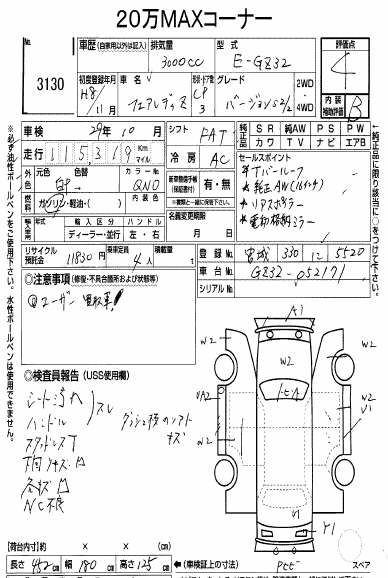 20万MAXコーナー
3130
車歴 (自家用以外は記入)
排気量 3000cc
型式 E-GZ32
評価点 4
初度登録年月 H8年 11月
車名 フェアレディZ
ドア・形 CP 3
グレード バージョンS2/2
2WD・4WD
内装補助評価 B
車検 29年 10月
シフト FAT
純正品 SR 純AW PS PW
カワ TV ナビ エアB
走行 115,319 Km マイル
冷房 AC
セールスポイント
Tバールーフ
純正AW(16インチ)
リアスポイラー
電動格納ミラー
外装 元色 色替
カラーNo. QN0
燃料 ガソリン・軽油・( )
内装色
新車整備手帳(保証書付) 有・無
輸入車使用欄 輸入区分 ハンドル
ディーラー・並行 左・右
名義変更期限 月 日
リサイクル預託金 11830円
乗車定員 4人
積載量 t
登録 No. 宮城 330 に 5520
車台 No. GZ32-052171
シリアルNo.
注意事項 (修復・不具合箇所および状態等)
検査員報告 (USS使用欄)
シート汚れ
ハンドル スレ
NC不良
A1
W2
W2
W2
UA2
W2
W2
U1
Y1
【荷台内寸】 × × cm
長さ 452cm 幅 180cm 高さ 125cm
(車検証上の寸法)
スペア
※必ず油性ボールペンをご使用下さい。水性ボールペンは使用できません。
※純正品に限り該当に○をつけて下さい。